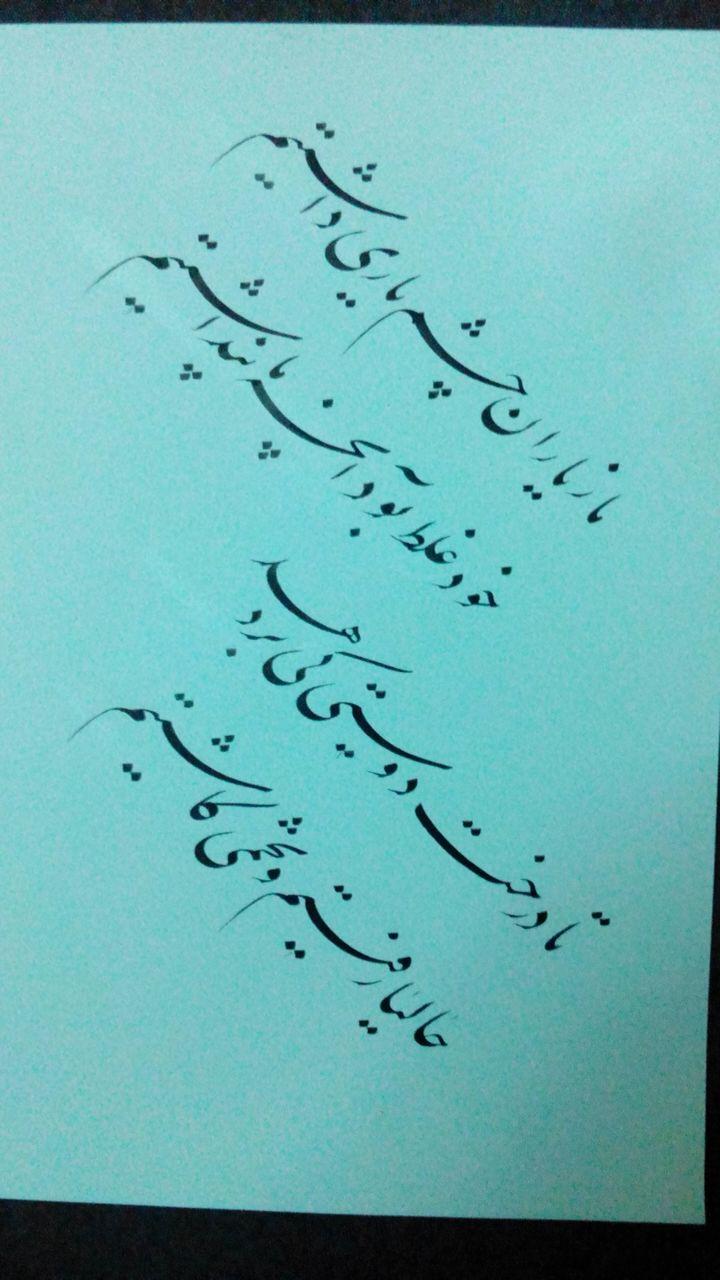 ما ز یاران چشم یاری داشتیم
خود غلط بود آنچه ما پنداشتیم
تا درخت دوستی کی بر دهد
حالیا رفتیم و تخمی کاشتیم